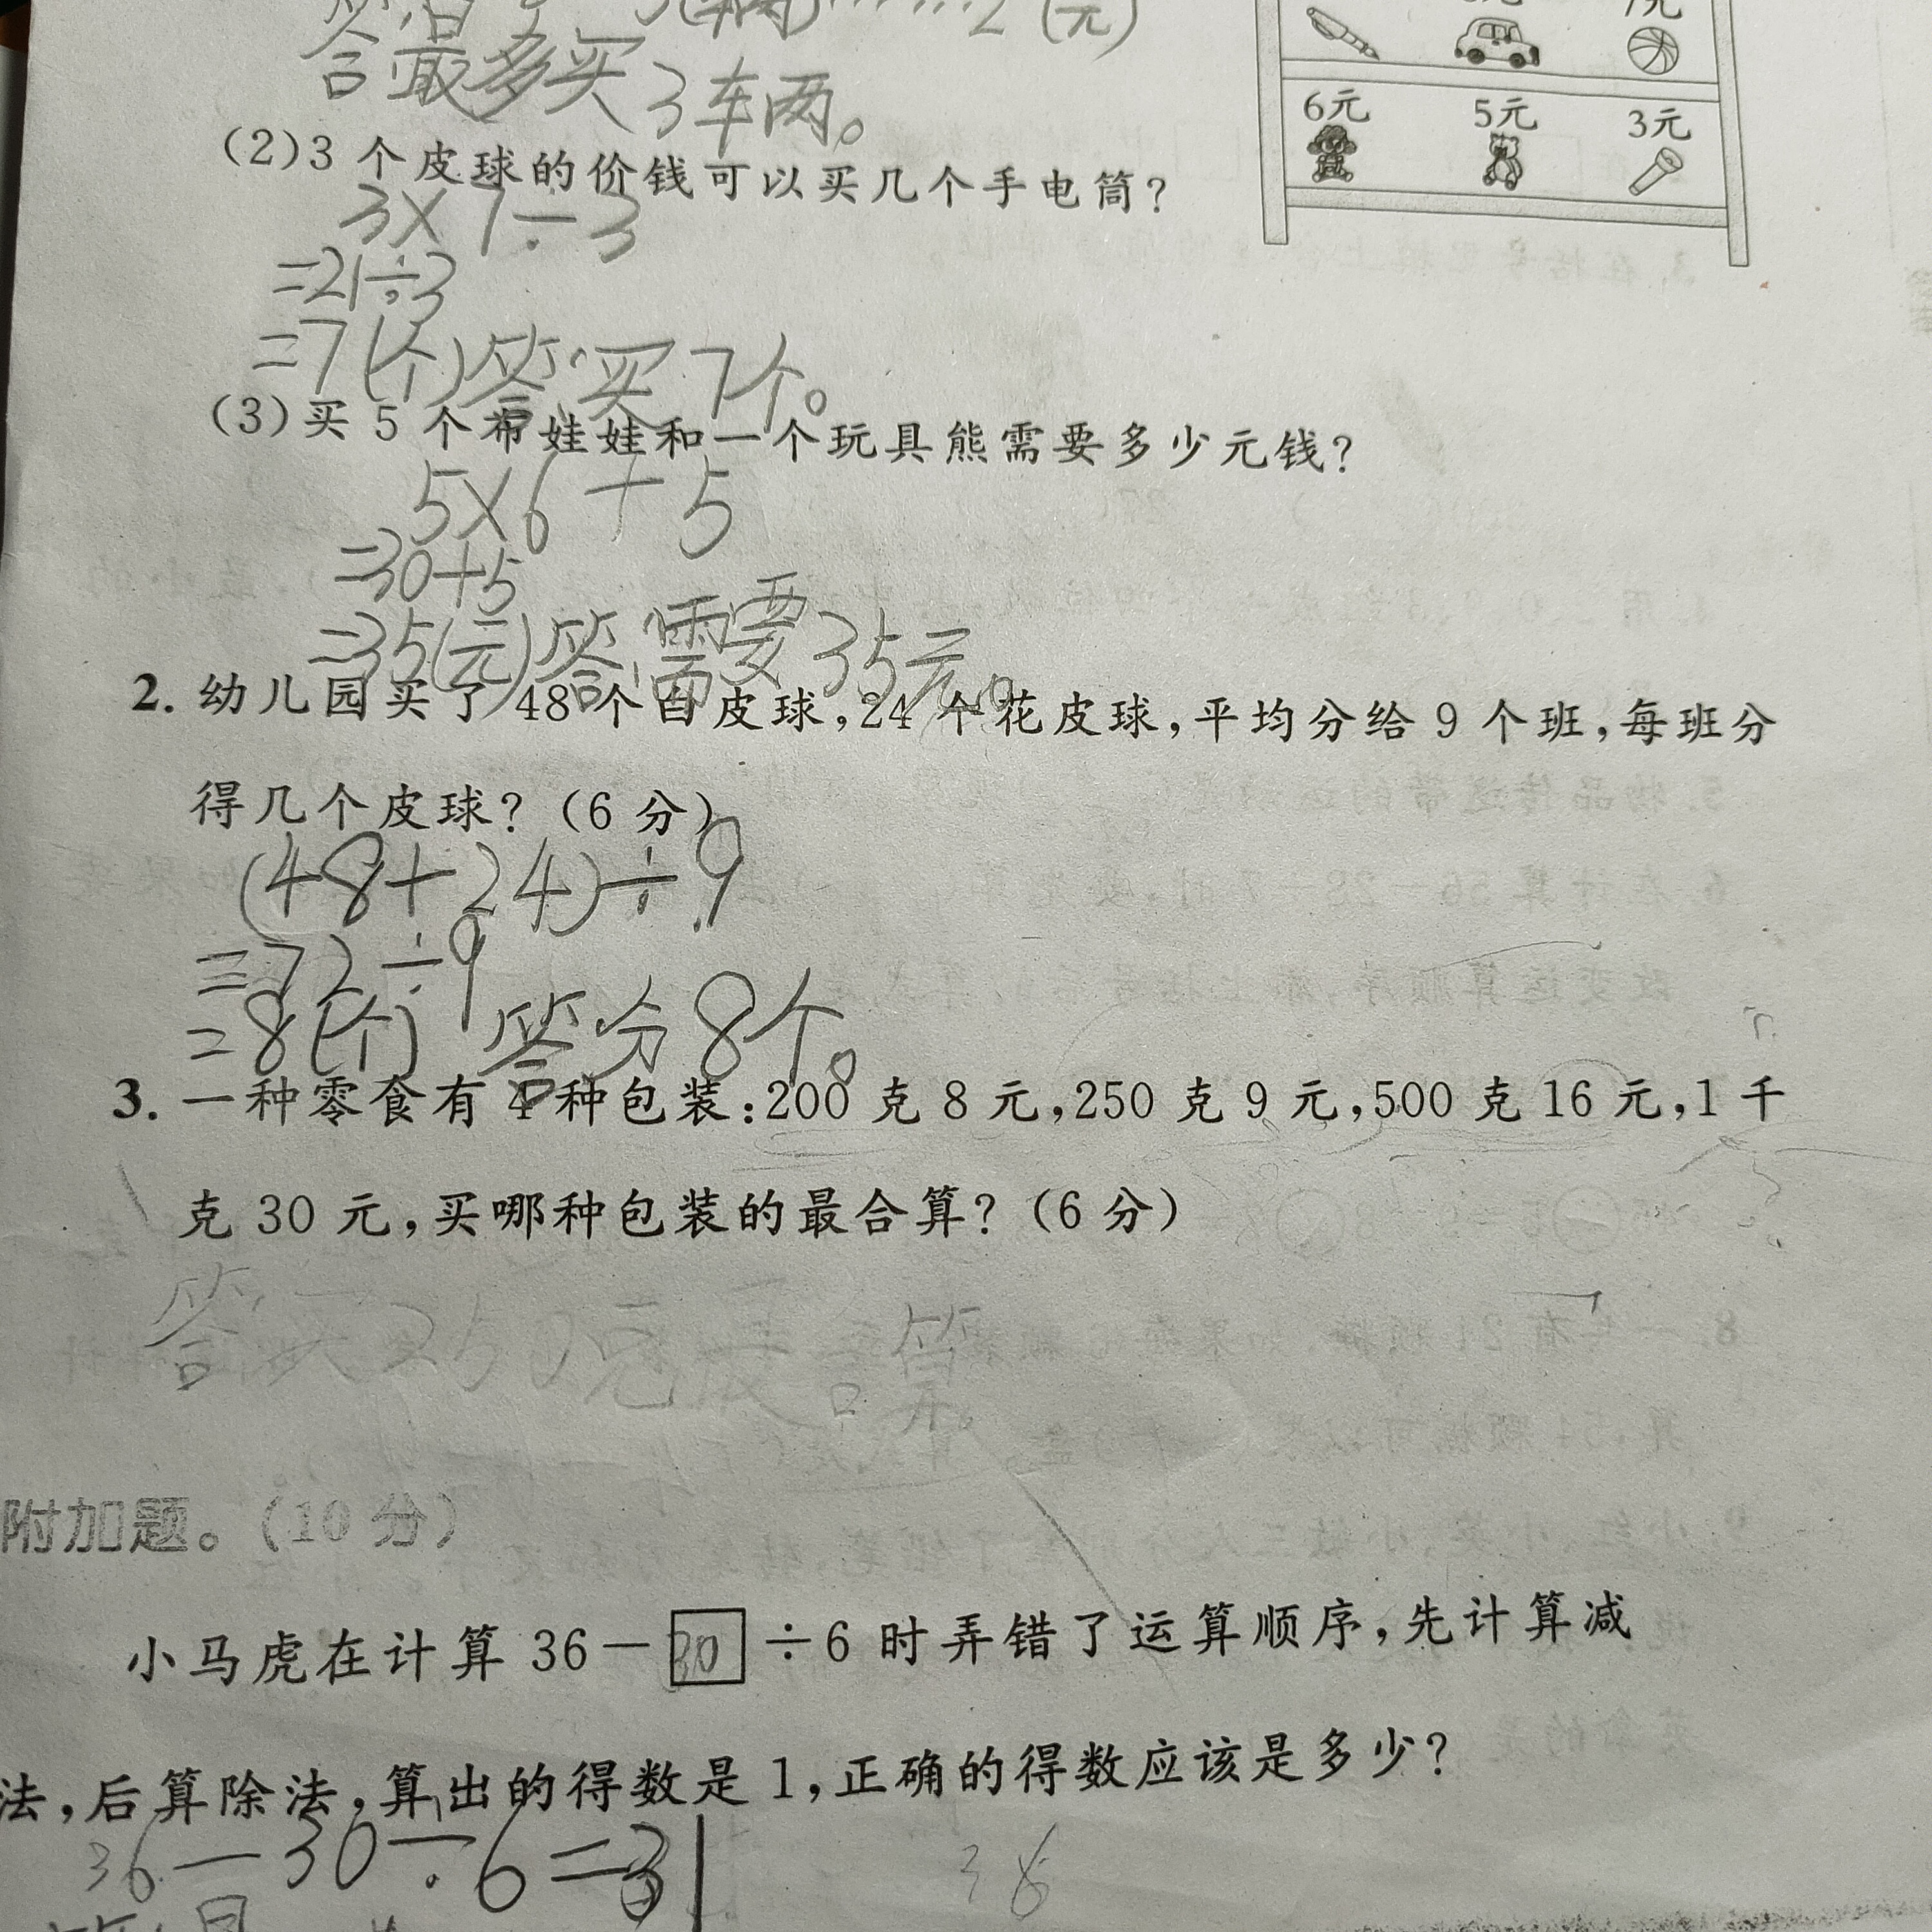 3(车两)……2(元)
答最多买3车两。
7元
6元 5元 3元
(2)3个皮球的价钱可以买几个手电筒?
3×7÷3
=21÷3
=7(个)答:买7个。
(3)买5个布娃娃和一个玩具熊需要多少元钱?
5×6+5
=30+5
=35(元)答:需要35元。
2.幼儿园买了48个白皮球,24个花皮球,平均分给9个班,每班分
得几个皮球?(6分)
(48+24)÷9
=72÷9
=8(个) 答:分8个。
3.一种零食有4种包装:200克8元,250克9元,500克16元,1千
克30元,买哪种包装的最合算?(6分)
答:买250克最合算。
附加题。(10分)
小马虎在计算36-30÷6时弄错了运算顺序,先计算减
法,后算除法,算出的得数是1,正确的得数应该是多少?
36-30÷6=31